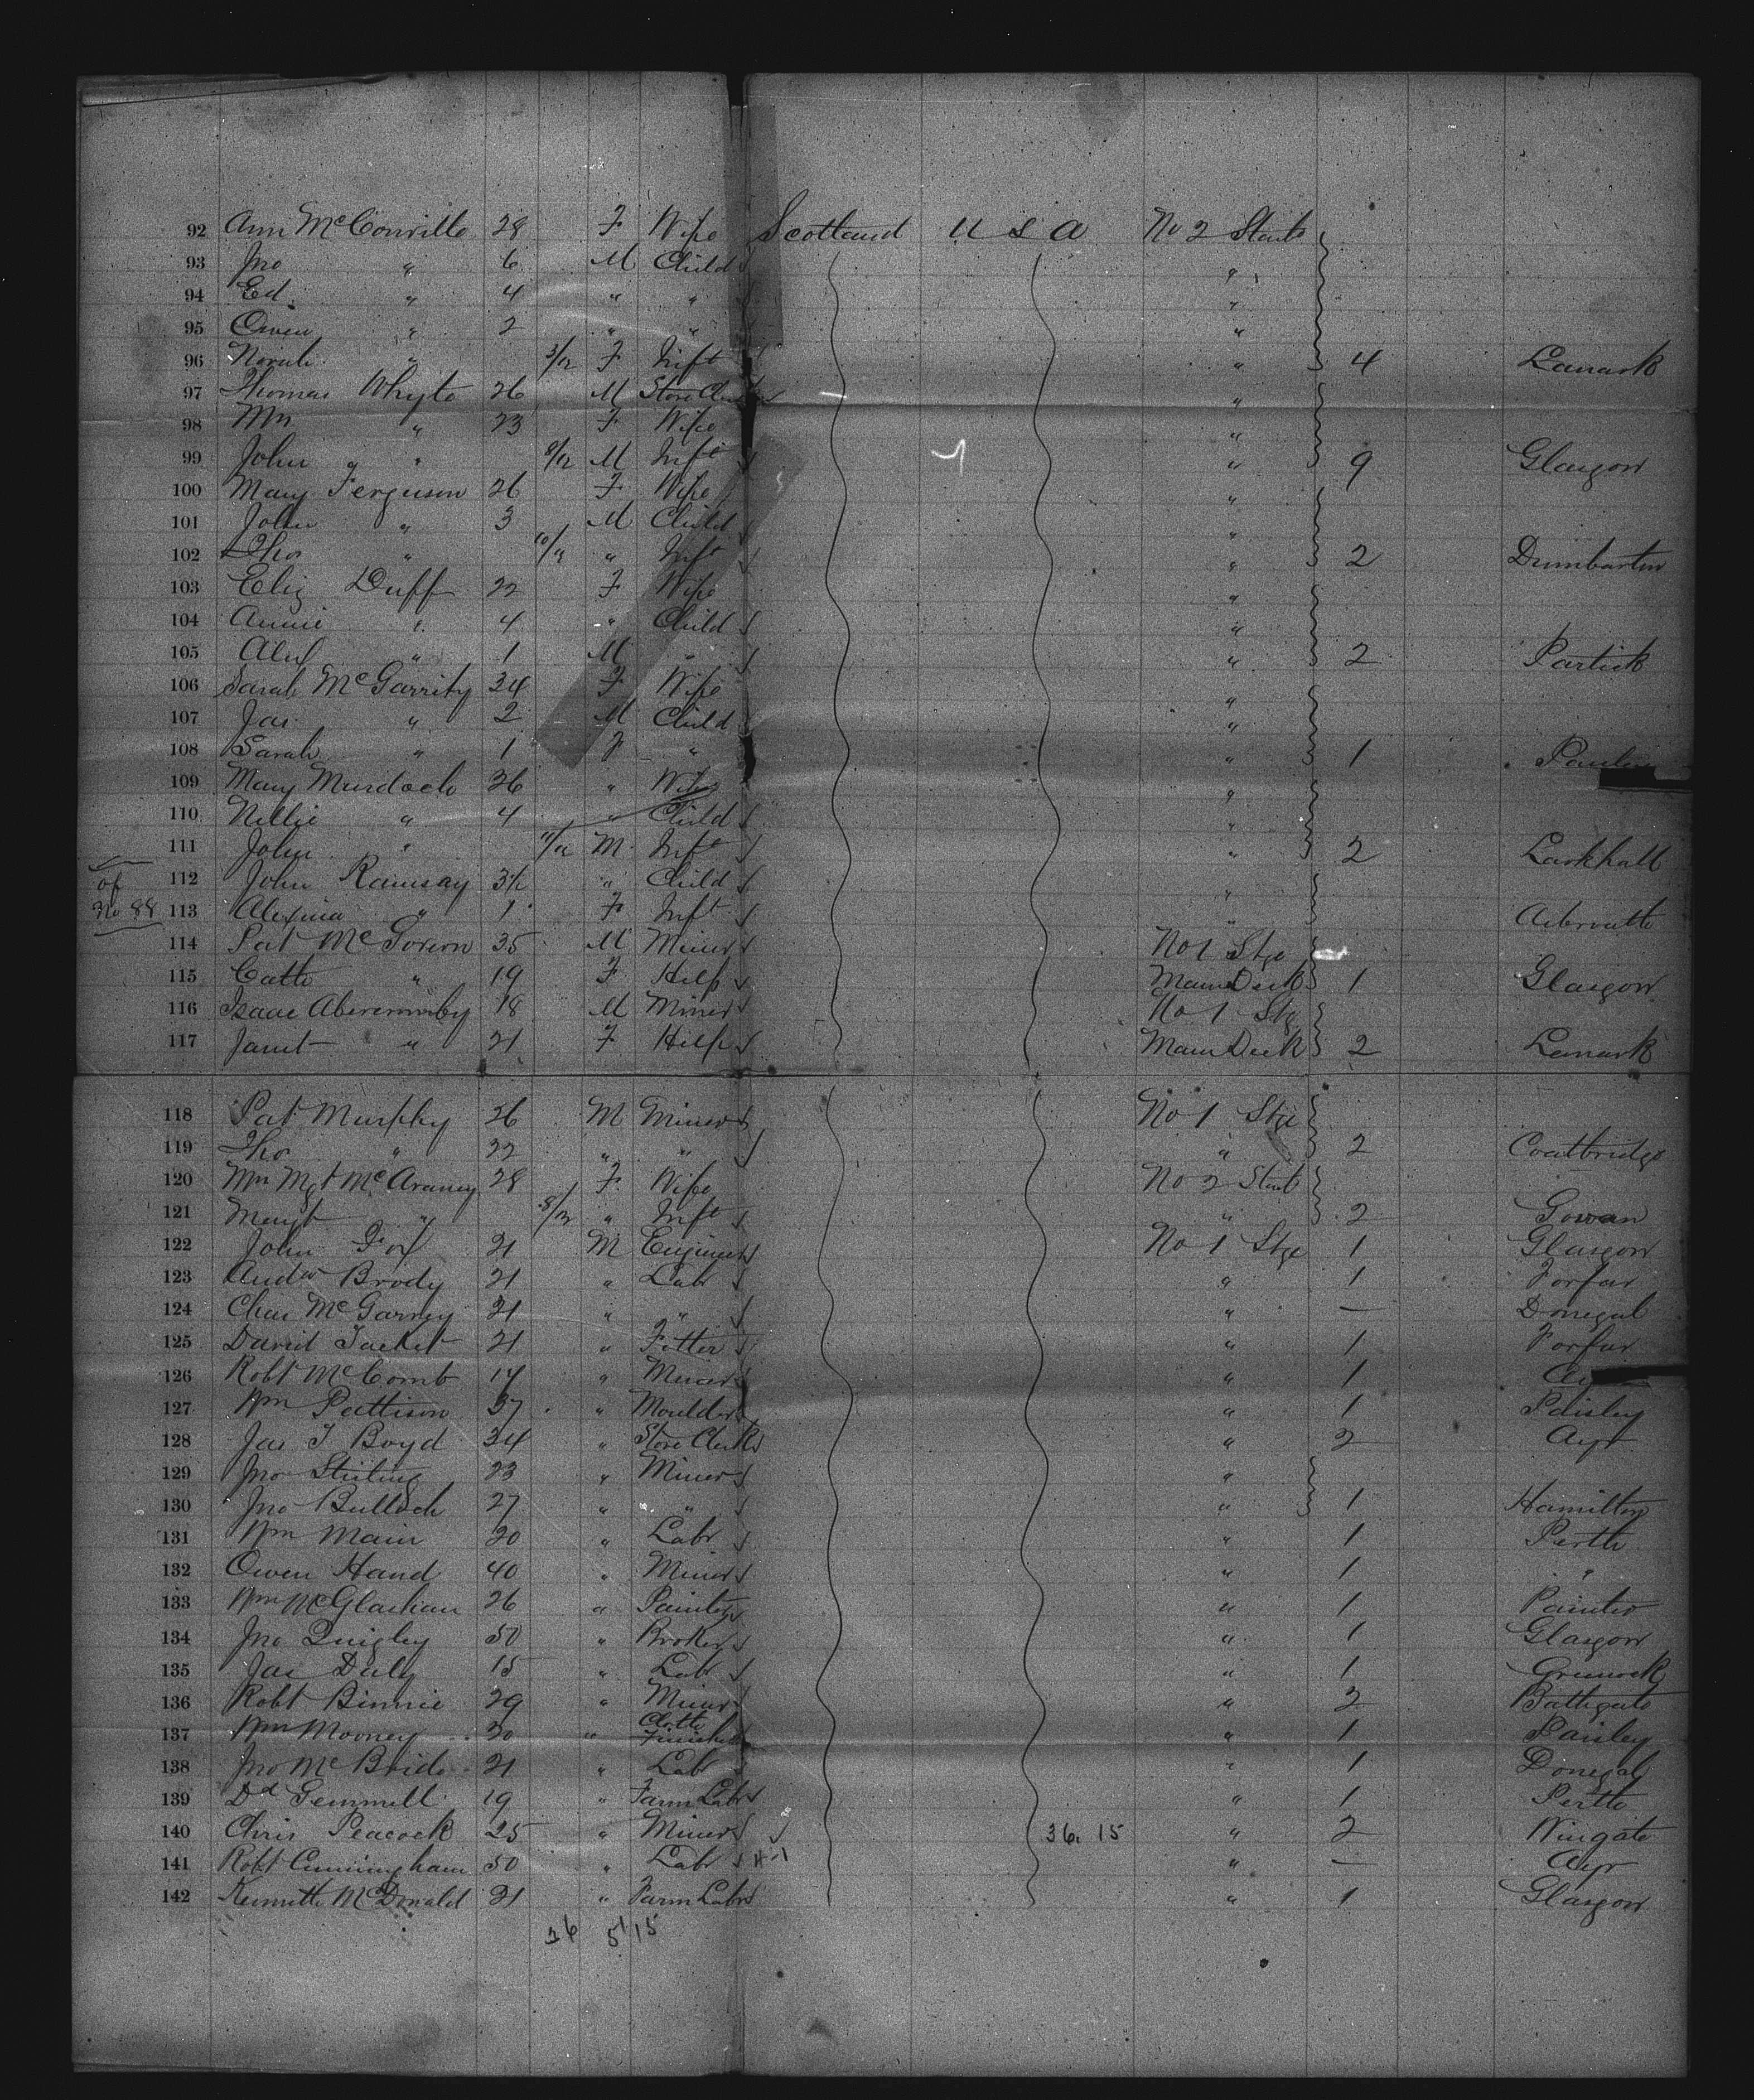 92 Ann McConville 28 F Wife Scotland U S A No 2 Starb
93 Jno " 6 M Child "
94 Ed. " 4 " " "
95 Owen " 2 " " "
96 Norah " 3/12 F Inft " 4 Lanark
97 Thomas Whyte 26 M Store Clerk "
98 Mrs " 23 F Wife "
99 John " 8/12 M Inft " 9 Glasgow
100 Mary Ferguson 26 F Wife "
101 John " 3 M Child "
102 Tho " 10/12 " Inft " 2 Dumbarton
103 Eliz Duff 22 F Wife "
104 Annie " 4 " Child "
105 Alex " 1 M " " 2 Partick
106 Sarah McGarrity 34 F Wife "
107 Jas. " 2 M Child "
108 Sarah " 1 F " " 1
109 Mary Murdoch 26 " Wife "
110 Nellie " 4 " Child "
111 John " 11/12 M Inft " 2 Larkhall
of
No 88
112 John Ramsay 3 1/2 " Child "
113 Alexina " 1 F Inft " Arbroath
114 Pat 35 M Miner No 1 Stge
115 Cath " 19 F Help Main Deck 1 Glasgow
116 Isaac Abercromby 18 M Miner No 1 Stge
117 Janet " 21 F Help Main Deck 2 Lanark
118 Pat Murphy 26 M Miner No 1 Stge
119 Tho " 22 " " " 2 Coatbridge
120 Mrs Mgt McAraney 28 F Wife No 2 Starb
121 Margt " 8/12 " Inft " 2 Govan
122 John Fox 21 M Engineer No 1 Stge 1 Glasgow
123 Andw Brody 21 " Labr " 1 Forfar
124 Chas McGarvey 21 " " " — Donegal
125 David Jacket 21 " Fitter " 1 Forfar
126 Robt McComb 17 " Miner " 1
127 Wm Pattison 37 " Moulder " 1 Paisley
128 Jas T Boyd 34 " Store Clerk " 2 Ayr
129 Jno Stirling 23 " Miner "
130 Jno Bulloch 27 " " " 1 Hamilton
131 Wm Main 20 " Labr " 1 Perth
132 Owen Hand 40 " Miner " 1 "
133 Wm McGlashan 26 " Painter " 1 Painter
134 Jno Quigley 50 " Broker " 1 Glasgow
135 Jas Daly 15 " Labr " 1 Greenock
136 Robt Binnie 29 " Miner " 2 Bathgate
137 Wm Mooney 30 " Cloth Finisher " 1 Paisley
138 Jno McBride 21 " Labr " 1 Donegal
139 Dd Gemmill 19 " Farm Labr " 1 Perth
140 Chris Peacock 25 " Miner 36. 15 " 2 Wingate
141 Robt Cunningham 50 " Labr " — Ayr
142 Kenneth McDonald 21 " Farm Labr " 1 Glasgow
36 51 15